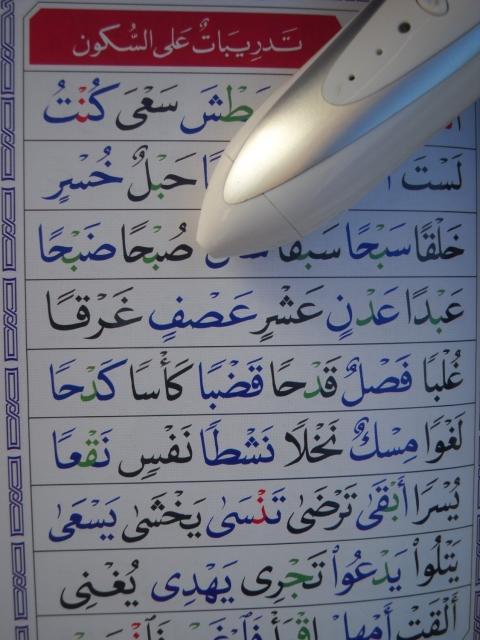 تَدرِيبَاتٌ عَلى السُّكون
سَعْىَ كُنْتُ
لَسْتَ حَبْلٌ خُسْرٍ
خَلْقًا سَبْحًا سَبْقًا صُبْحًا ضَبْحًا
عَبْدًا عَدْنٍ عَشْرٍ عَصْفٍ غَرْقًا
غُلْبًا فَصْلٌ قَدْحًا قَضْبًا كَأْسًا كَدْحًا
لَغْوًا مِسْكٌ نَخْلًا نَشْطًا نَفْسٍ نَقْعًا
يُسْرًا أَبْقَىٰ تَرْضَىٰ تَنْسَىٰ يَخْشَىٰ يَسْعَىٰ
يَتْلُواْ يَدْعُواْ تَجْرِى يَهْدِى يُغْنِى
أَلْقَتْ